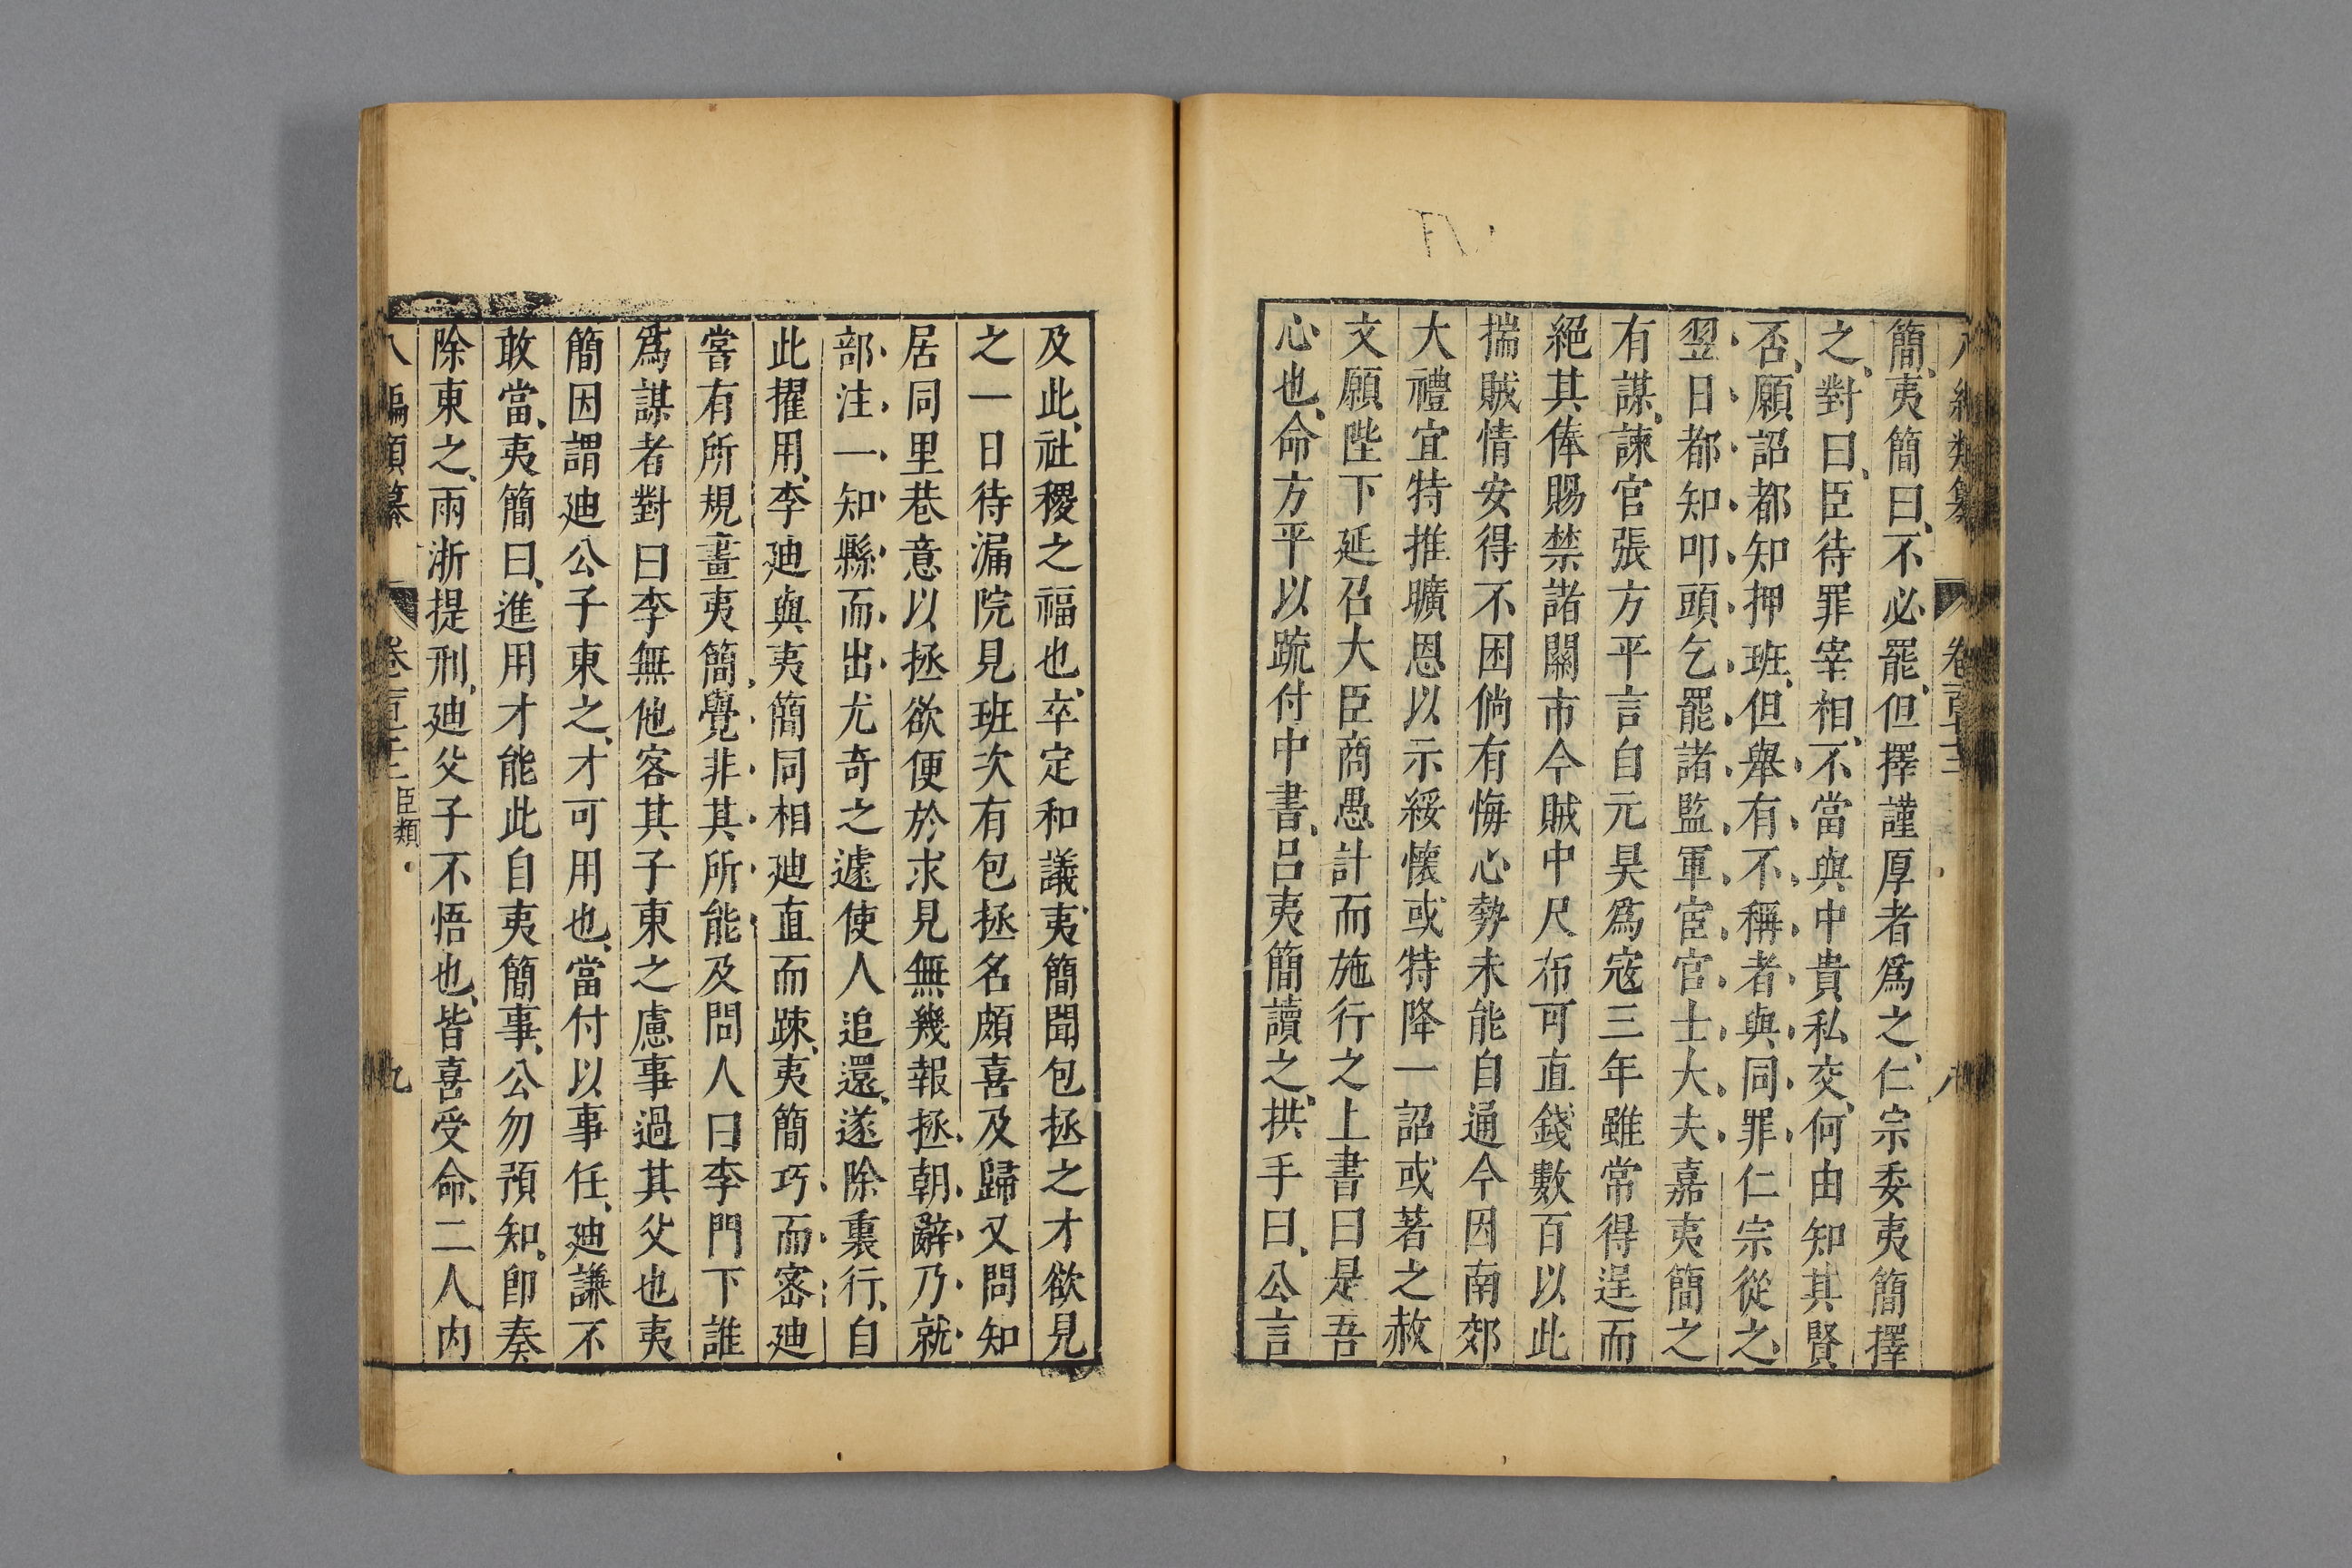 八編類纂 卷百十三 八
簡、夷簡曰、不必罷、但擇謹厚者爲之、仁宗委夷簡擇
之、對曰、臣待罪宰相、不當與中貴私交、何由知其賢
否、願詔都知押班、但舉有不稱者、與同罪、仁宗從之、
翌日都知叩頭乞罷諸監軍宦官、士大夫嘉夷簡之
有謀、諫官張方平言自元昊爲寇三年雖常得逞而
絕其俸賜禁諸關市今賊中尺布可直錢數百以此
揣賊情安得不困倘有悔心勢未能自通今因南郊
大禮宜特推曠恩以示綏懷或特降一詔或著之赦
文願陛下延召大臣商愚計而施行之上書曰是吾
心也、命方平以疏付中書、呂夷簡讀之、拱手曰、公言
及此、社稷之福也、卒定和議、夷簡聞包拯之才欲見
之一日待漏院見班次有包拯名頗喜及歸又問知
居同里巷意以拯欲便於求見無幾報拯朝辭乃就
部注一知縣而出尤奇之遽使人追還、遂除裏行、自
此擢用、李迪與夷簡同相迪直而疎、夷簡巧而密迪
嘗有所規畫夷簡覺非其所能及問人曰李門下誰
爲謀者對曰李無他客其子東之慮事過其父也夷
簡因謂迪公子東之、才可用也、當付以事任、迪謙不
敢當、夷簡曰、進用才能此自夷簡事、公勿預知、卽奏
除東之、兩浙提刑、迪父子不悟也、皆喜受命、二人內
八編類纂 卷百十三 臣類 九